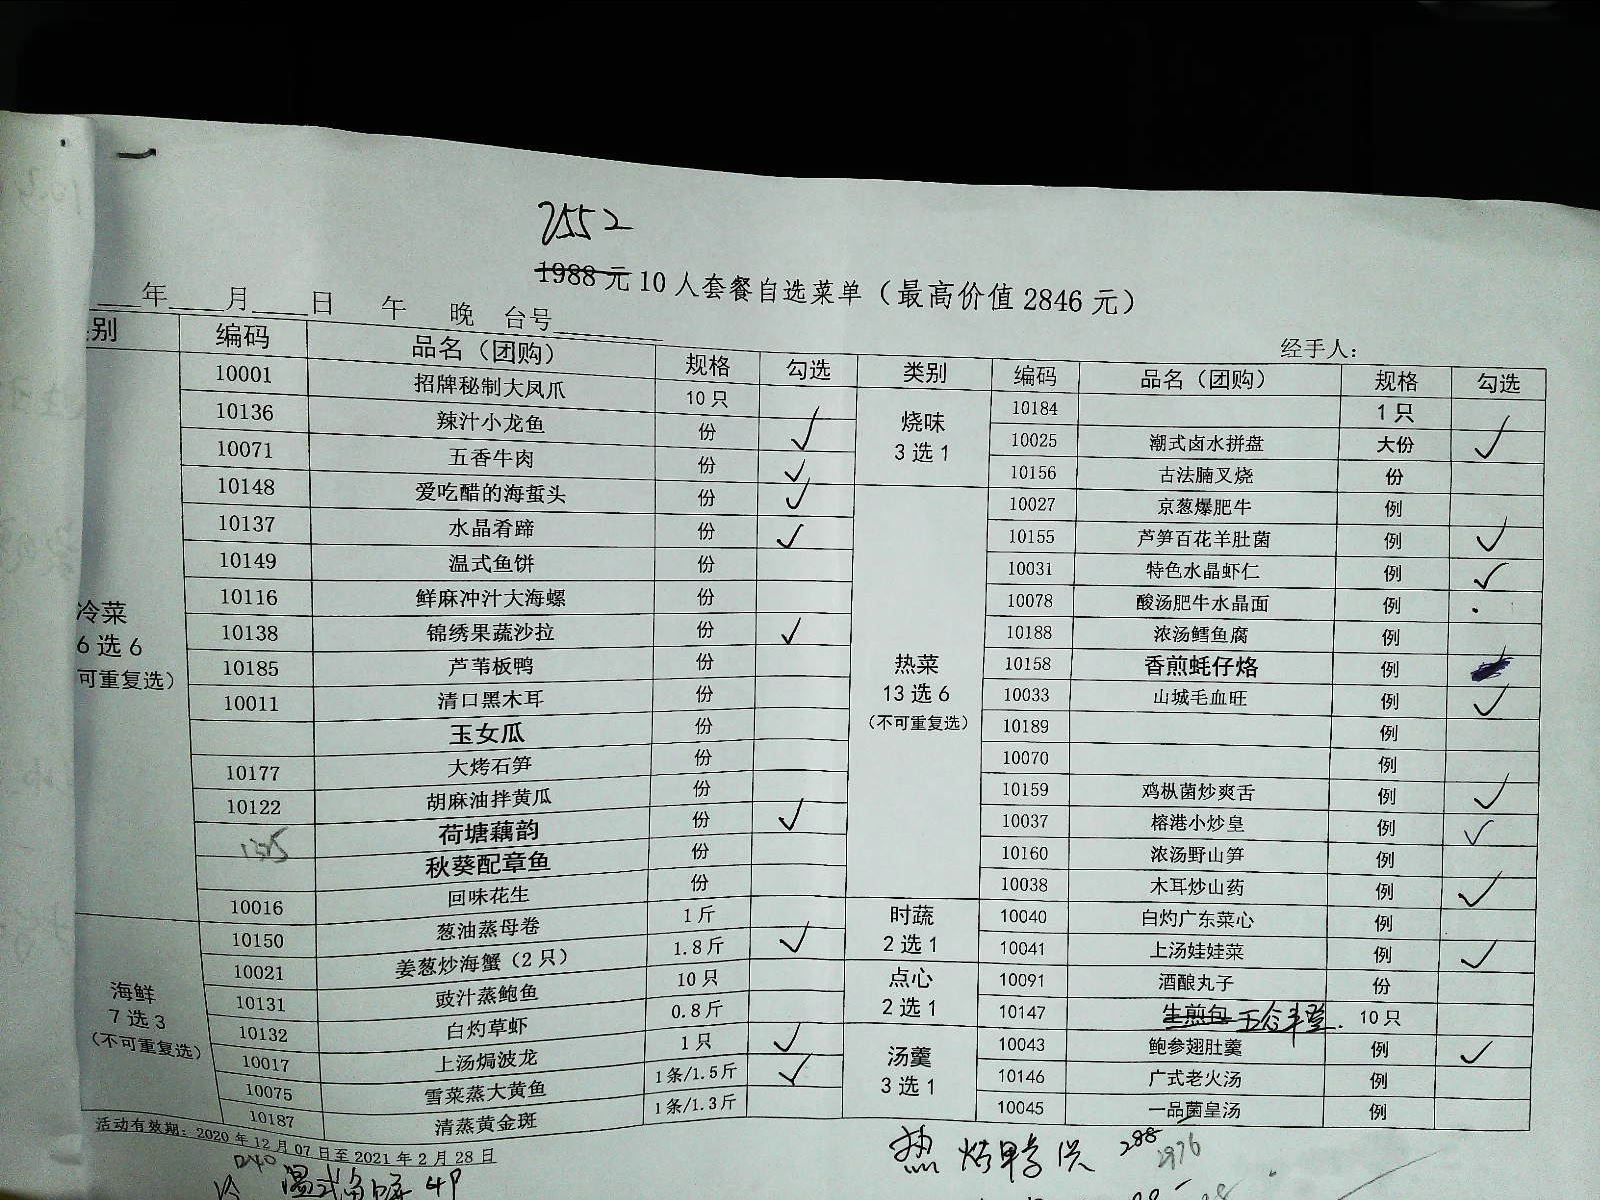 2552
1988元10人套餐自选菜单（最高价值2846元）
年 月 日 午 晚 台号
经手人：
别 编码 品名（团购） 规格 勾选 类别 编码 品名（团购） 规格 勾选
冷菜
6选6
可重复选）
10001 招牌秘制大凤爪 10只
10136 辣汁小龙鱼 份 ✓
10071 五香牛肉 份 ✓
10148 爱吃醋的海蜇头 份 ✓
10137 水晶肴蹄 份 ✓
10149 温式鱼饼 份
10116 鲜麻冲汁大海螺 份
10138 锦绣果蔬沙拉 份 ✓
10185 芦苇板鸭 份
10011 清口黑木耳 份
玉女瓜 份
10177 大烤石笋 份
10122 胡麻油拌黄瓜 份
荷塘藕韵 份 ✓
秋葵配章鱼 份
10016 回味花生 份
海鲜
7选3
（不可重复选）
10150 葱油蒸母卷 1斤
10021 姜葱炒海蟹（2只） 1.8斤 ✓
10131 豉汁蒸鲍鱼 10只
10132 白灼草虾 0.8斤
10017 上汤焗波龙 1只 ✓
10075 雪菜蒸大黄鱼 1条/1.5斤 ✓
10187 清蒸黄金斑 1条/1.3斤
烧味
3选1
10184 1只
10025 潮式卤水拼盘 大份 ✓
10156 古法腩叉烧 份
热菜
13选6
（不可重复选）
10027 京葱爆肥牛 例
10155 芦笋百花羊肚菌 例 ✓
10031 特色水晶虾仁 例 ✓
10078 酸汤肥牛水晶面 例
10188 浓汤鳕鱼腐 例
10158 香煎蚝仔烙 例
10033 山城毛血旺 例 ✓
10189 例
10070 例
10159 鸡枞菌炒爽舌 例 ✓
10037 榕港小炒皇 例 ✓
10160 浓汤野山笋 例
10038 木耳炒山药 例 ✓
时蔬
2选1
10040 白灼广东菜心 例
10041 上汤娃娃菜 例 ✓
点心
2选1
10091 酒酿丸子 份
10147 生煎包 五谷丰登. 10只
汤羹
3选1
10043 鲍参翅肚羹 例 ✓
10146 广式老火汤 例
10045 一品菌皇汤 例
活动有效期：2020年12月07日至2021年2月28日
热 288 2976
冷 温式鱼饼